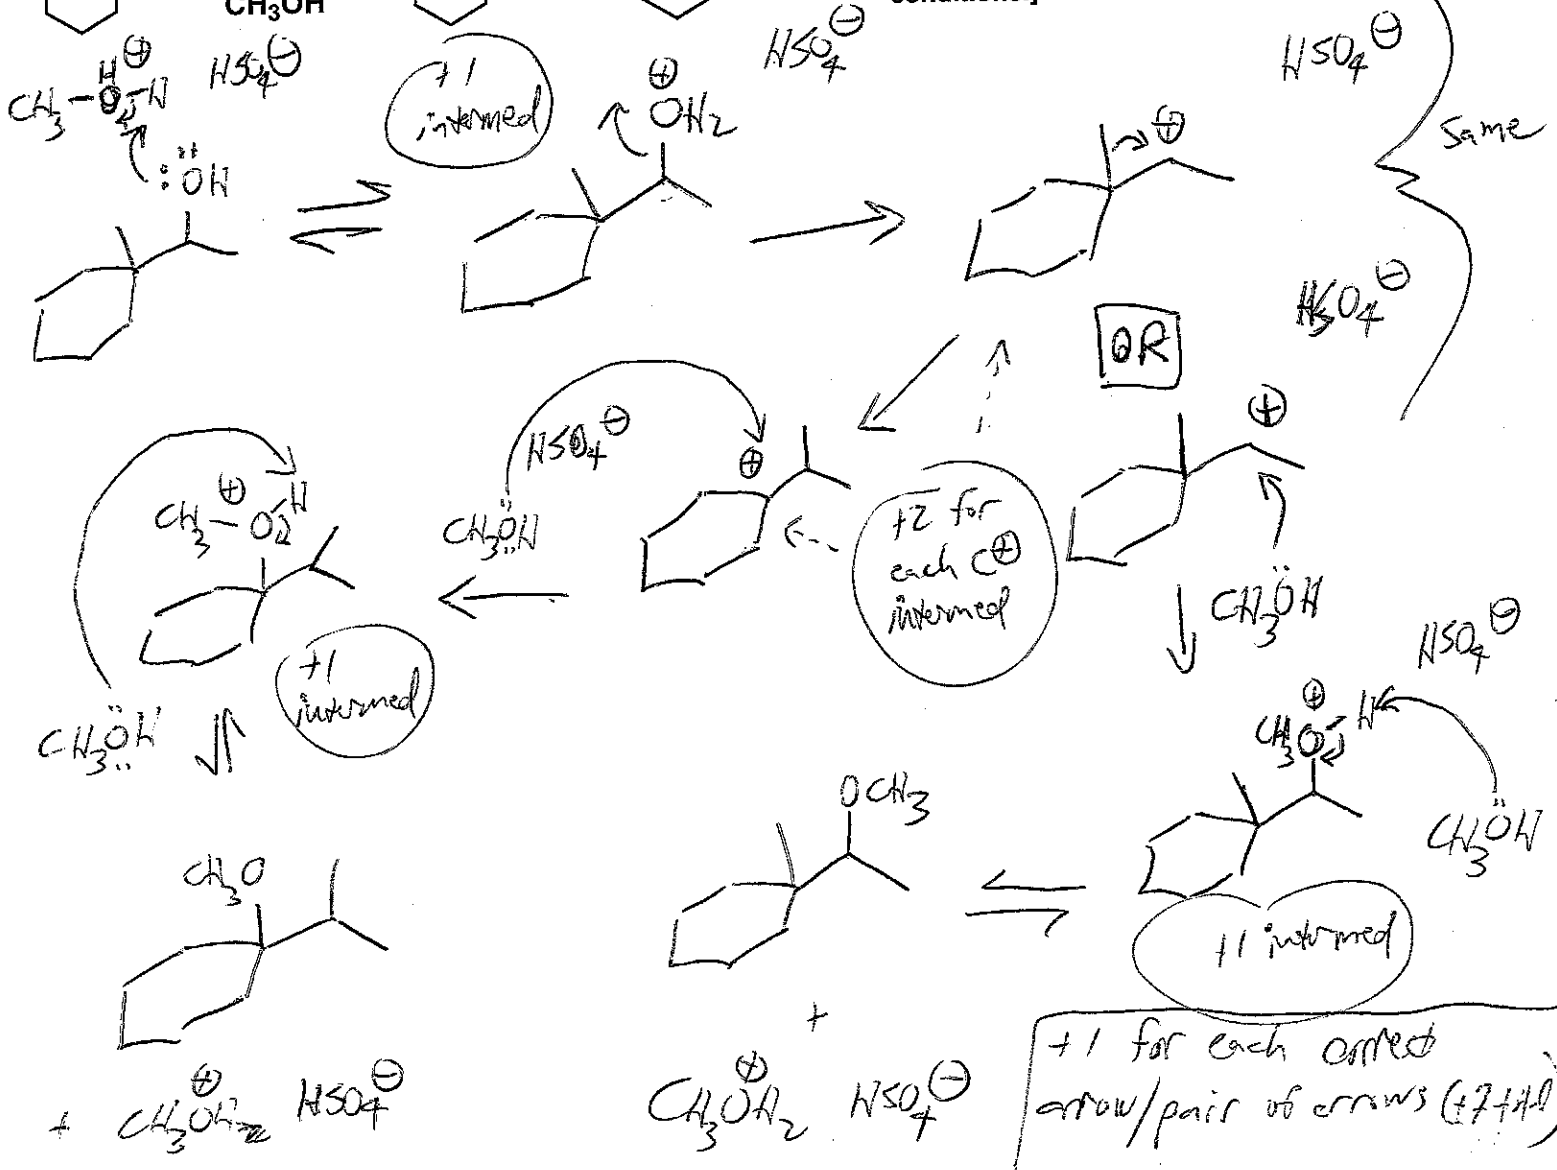 CH3OH
H
⊕
CH3-O-H
HSO4⊖
:ÖH
+1
intermed
⊕
OH2
HSO4⊖
⊕
HSO4⊖
Same
HSO4⊖
OR
⊕
HSO4⊖
CH3ÖH
⊕
+2 for
each C⊕
intermed
CH3ÖH
HSO4⊖
⊕
CH3-O
H
+1
intermed
CH3ÖH
⊕
CH3O
H
CH3ÖH
+1 intermed
OCH3
CH3O
+
CH3OH2⊕
HSO4⊖
+
CH3OH2⊕
HSO4⊖
+1 for each correct
arrow/pair of arrows (+7 total)